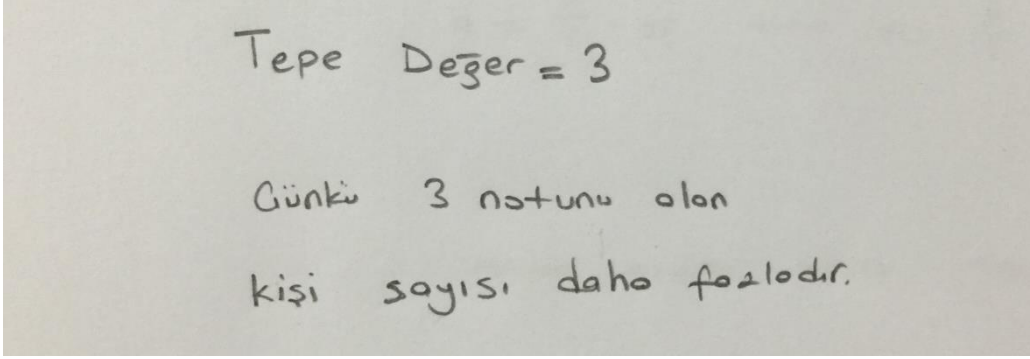 Tepe Değer = 3
Çünkü 3 notunu alan
kişi sayısı daha fazladır.